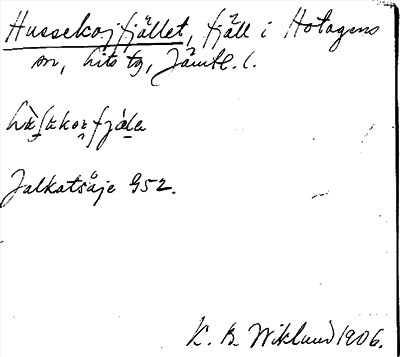 Hussekojfjället, fjäll i Hotagens
sn, Lits tg, Jämtl. l.
Jalkatsåje 952.
K. B. Wiklund 1906.